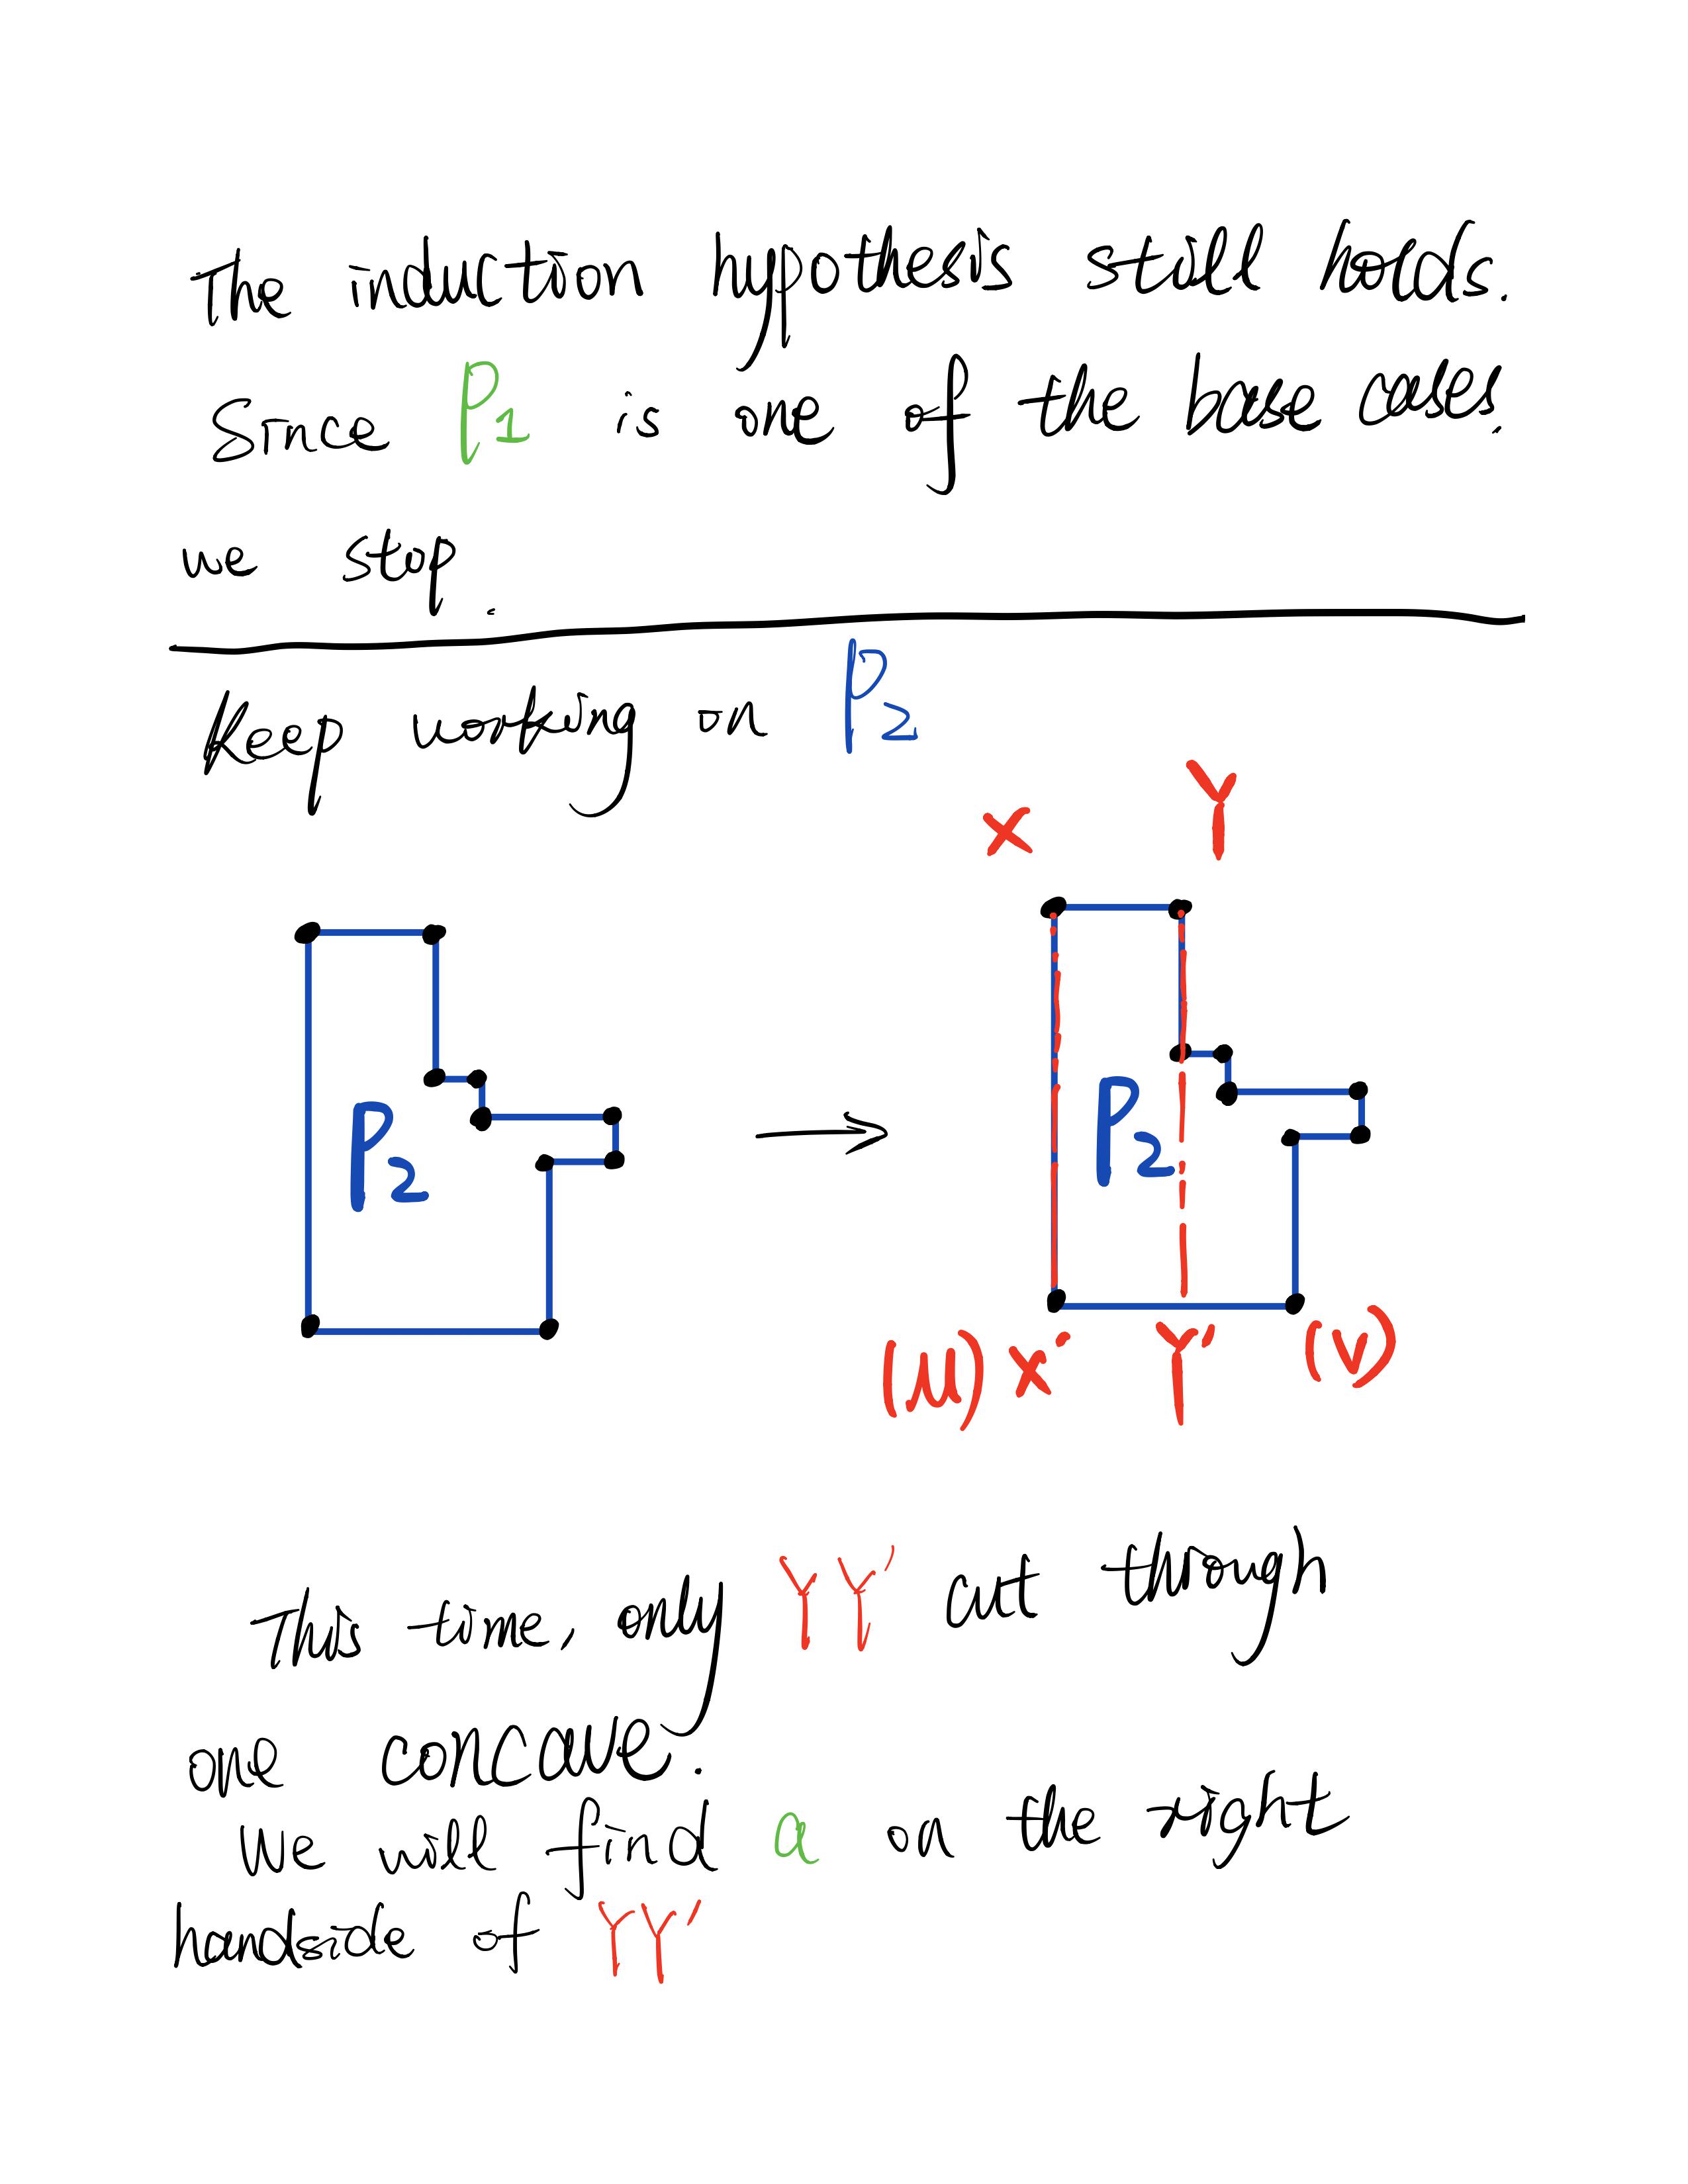 The induction hypothesis still holds.
Since P1 is one of the base cases,
we stop.
Keep working on P2
X Y
P2 P2
(u) X' Y' (v)
This time, only YY' cut through
one concave.
We will find a on the right
handside of YY'